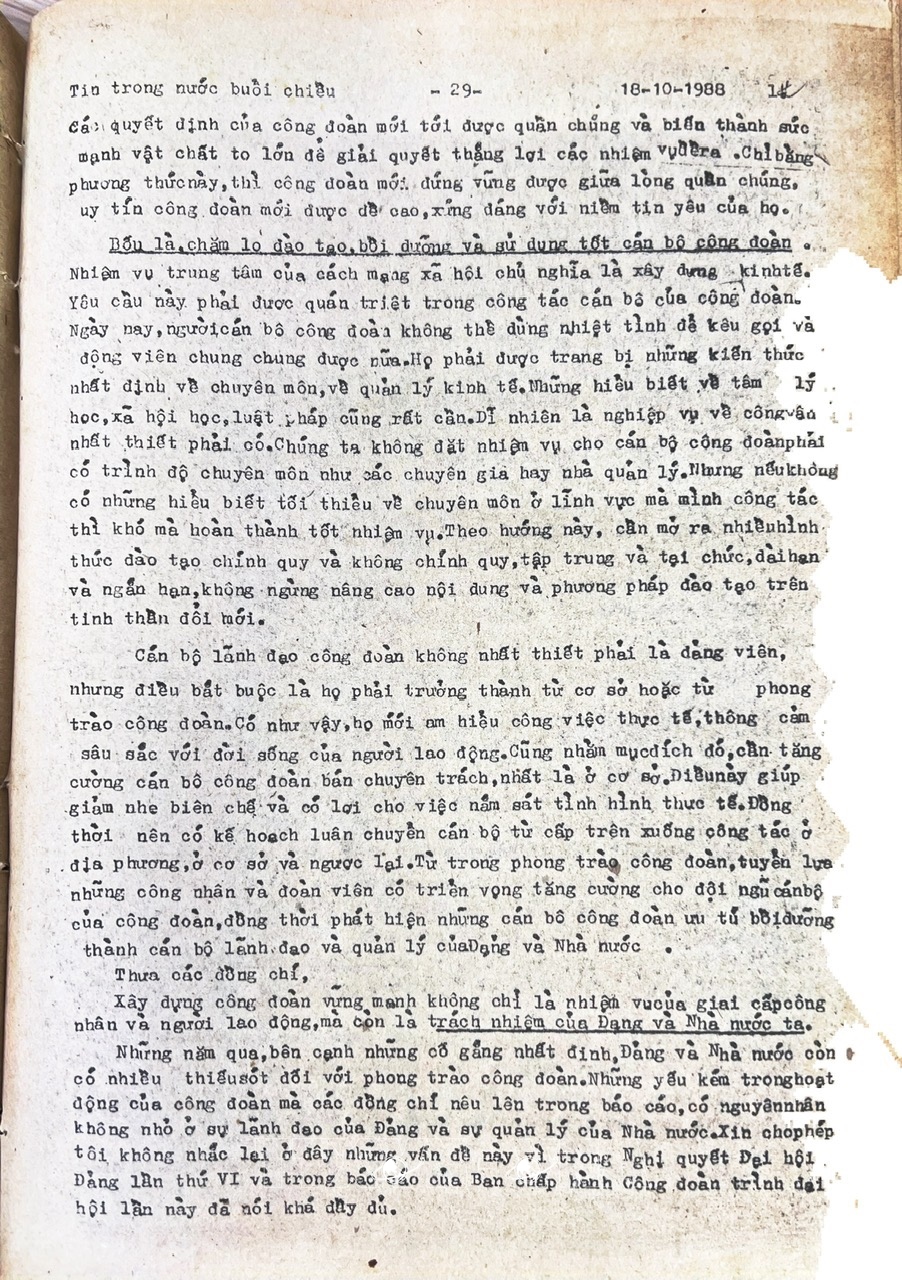 Tin trong nước buổi chiều - 29- 18-10-1988
các quyết định của công đoàn mới tới được quần chúng và biến thành sức
mạnh vật chất to lớn để giải quyết thắng lợi các nhiệm vụđềra .Chỉbằng
phương thứcnày,thì công đoàn mới đứng vững được giữa lòng quần chúng,
uy tín công đoàn mới được đề cao,xứng đáng với niềm tin yêu của họ.
Bốn là,chăm lo đào tạo,bồi dưỡng và sử dụng tốt cán bộ công đoàn .
Nhiệm vụ trung tâm của cách mạng xã hội chủ nghĩa là xây dựng kinhtế.
Yêu cầu này phải được quán triệt trong công tác cán bộ của công đoàn.
Ngày nay,ngườicán bộ công đoàn không thể dùng nhiệt tình để kêu gọi và
động viên chung chung được nữa.Họ phải được trang bị những kiến thức
nhất định về chuyên môn,về quản lý kinh tế.Những hiểu biết về tâm lý
học,xã hội học,luật pháp cũng rất cần.Dĩ nhiên là nghiệp vụ về côngvận
nhất thiết phải có.Chúng ta không đặt nhiệm vụ cho cán bộ công đoànphải
có trình độ chuyên môn như các chuyên gia hay nhà quản lý.Nhưng nếukhông
có những hiểu biết tối thiểu về chuyên môn ở lĩnh vực mà mình công tác
thì khó mà hoàn thành tốt nhiệm vụ.Theo hướng này, cần mở ra nhiềuhình
thức đào tạo chính quy và không chính quy,tập trung và tại chức,dàihạn
và ngắn hạn,không ngừng nâng cao nội dung và phương pháp đào tạo trên
tinh thần đổi mới.
Cán bộ lãnh đạo công đoàn không nhất thiết phải là đảng viên,
nhưng điều bắt buộc là họ phải trưởng thành từ cơ sở hoặc từ phong
trào công đoàn.Có như vậy,họ mới am hiểu công việc thực tế,thông cảm
sâu sắc với đời sống của người lao động.Cũng nhằm mụcđích đó,cần tăng
cường cán bộ công đoàn bán chuyên trách,nhất là ở cơ sở.Điềunày giúp
giảm nhẹ biên chế và có lợi cho việc nắm sát tình hình thực tế.Đồng
thời nên có kế hoạch luân chuyển cán bộ từ cấp trên xuống công tác ở
địa phương,ở cơ sở và ngược lại.Từ trong phong trào công đoàn,tuyển lựa
những công nhân và đoàn viên có triển vọng tăng cường cho đội ngũ cánbộ
của công đoàn,đồng thời phát hiện những cán bộ công đoàn ưu tú bồidưỡng
thành cán bộ lãnh đạo và quản lý củaĐảng và Nhà nước .
Thưa các đồng chí,
Xây dựng công đoàn vững mạnh không chỉ là nhiệm vụcủa giai cấpcông
nhân và người lao động,mà còn là trách nhiệm của Đảng và Nhà nước ta.
Những năm qua,bên cạnh những cố gắng nhất định,Đảng và Nhà nước còn
có nhiều thiếusót đối với phong trào công đoàn.Những yếu kém tronghoạt
động của công đoàn mà các đồng chí nêu lên trong báo cáo,có nguyênnhân
không nhỏ ở sự lãnh đạo của Đảng và sự quản lý của Nhà nước.Xin chophép
tôi không nhắc lại ở đây những vấn đề này vì trong Nghị quyết Đại hội
Đảng lần thứ VI và trong báo cáo của Ban chấp hành Công đoàn trình đại
hội lần này đã nói khá đầy đủ.